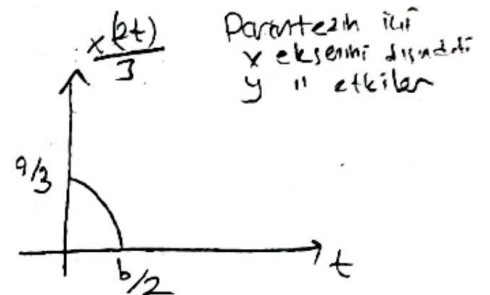 x(2t)
3
Parantezin içi
x eksenini dışındaki
y " etkiler
a/3
b/2
t